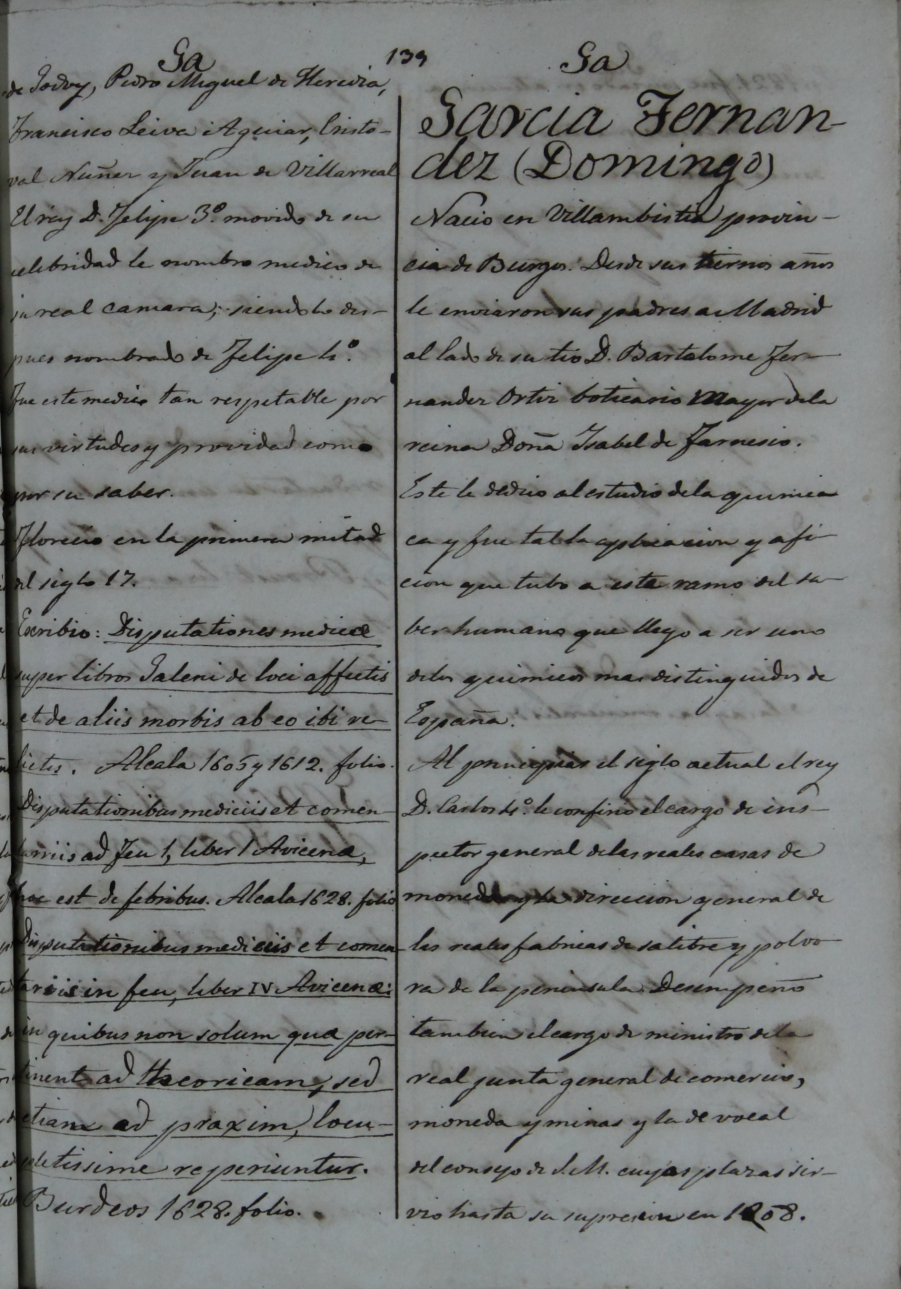 Ga
139
Ga
de Godoy, Pedro Miguel de Heredia,
Francisco Leiva i Aguiar, Cristo-
val Nuñez y Juan de Villarreal
El rey D. Felipe 3º movido de su
celebridad le nombro medico de
su real camara; siendolo des-
pues nombrado de Felipe 4º.
Fue este medico tan respetable por
sus virtudes y providad como
por su saber.
Florecio en la primera mitad
del siglo 17.
Escribio: Disputationes medicæ
super libros Galeni de loci affectis
et de aliis morbis ab eo ibi re-
lictis. Alcala 1605 y 1612. folio.
Disputationibus mediciis et comen-
tariis ad Feu 1, liber 1 Avicenæ,
hoc est de febribus. Alcala 1628. folio
Disputationibus mediciis et comen-
tariis in feu, liber IV Avicenæ:
in quibus non solum quæ per-
tinent ad theoricam, sed
etiam ad praxim, locu-
pletissime reperiuntur.
Burdeos 1628. folio.
Garcia Fernan-
dez (Domingo)
Nacio en Villambistia provin-
cia de Burgos. Desde sus tiernos años
le enviaron sus padres a Madrid
al lado de su tio D. Bartolome Fer-
nandez Ortiz boticario Mayor de la
reina Doña Isabel de Farnesio.
Este le dedico al estudio de la quimica
ca y fue tal la aplicacion y afi-
cion que tubo a esta ramo del sa-
ber humano que llego a ser uno
de los quimicos mas distinguidos de
España.
Al principiar el siglo actual el rey
D. Carlos 4º. le confirio el cargo de ins-
pector general de las reales casas de
moneda y la direccion general de
las reales fabricas de salitre y polvo-
ra de la peninsula. Desempeño
tambien el cargo de ministro de la
real junta general de comercio,
moneda y minas y la de vocal
del consejo de S.M. cuyas plazas sir-
vio hasta su supresion en 1808.